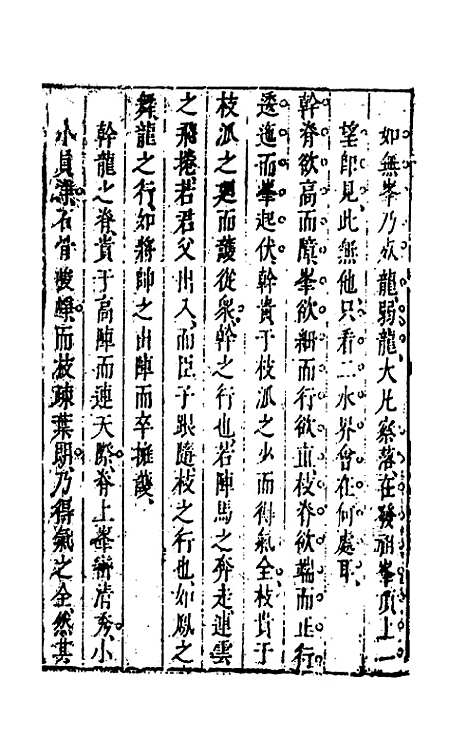 如無峯乃奴龍弱龍大凡察落在發祖峯頂上一
望卽見此無他只看二水界會在何處耳
幹脊欲高而障峯欲細而行欲直枝脊欲端而正行
逶迤而峯起伏幹貴于枝派之少而得氣全枝貴于
枝派之夛而護從衆幹之行也若陣馬之奔走連雲
之飛捲若君父出入而臣子跟隨枝之行也如鳳之
舞龍之行如將帥之出陣而卒擁護
幹龍之脊貴于高陣而連天際脊上峯巒清秀小
小員潔石骨稜崢而枝疎葉朗乃得氣之全然其